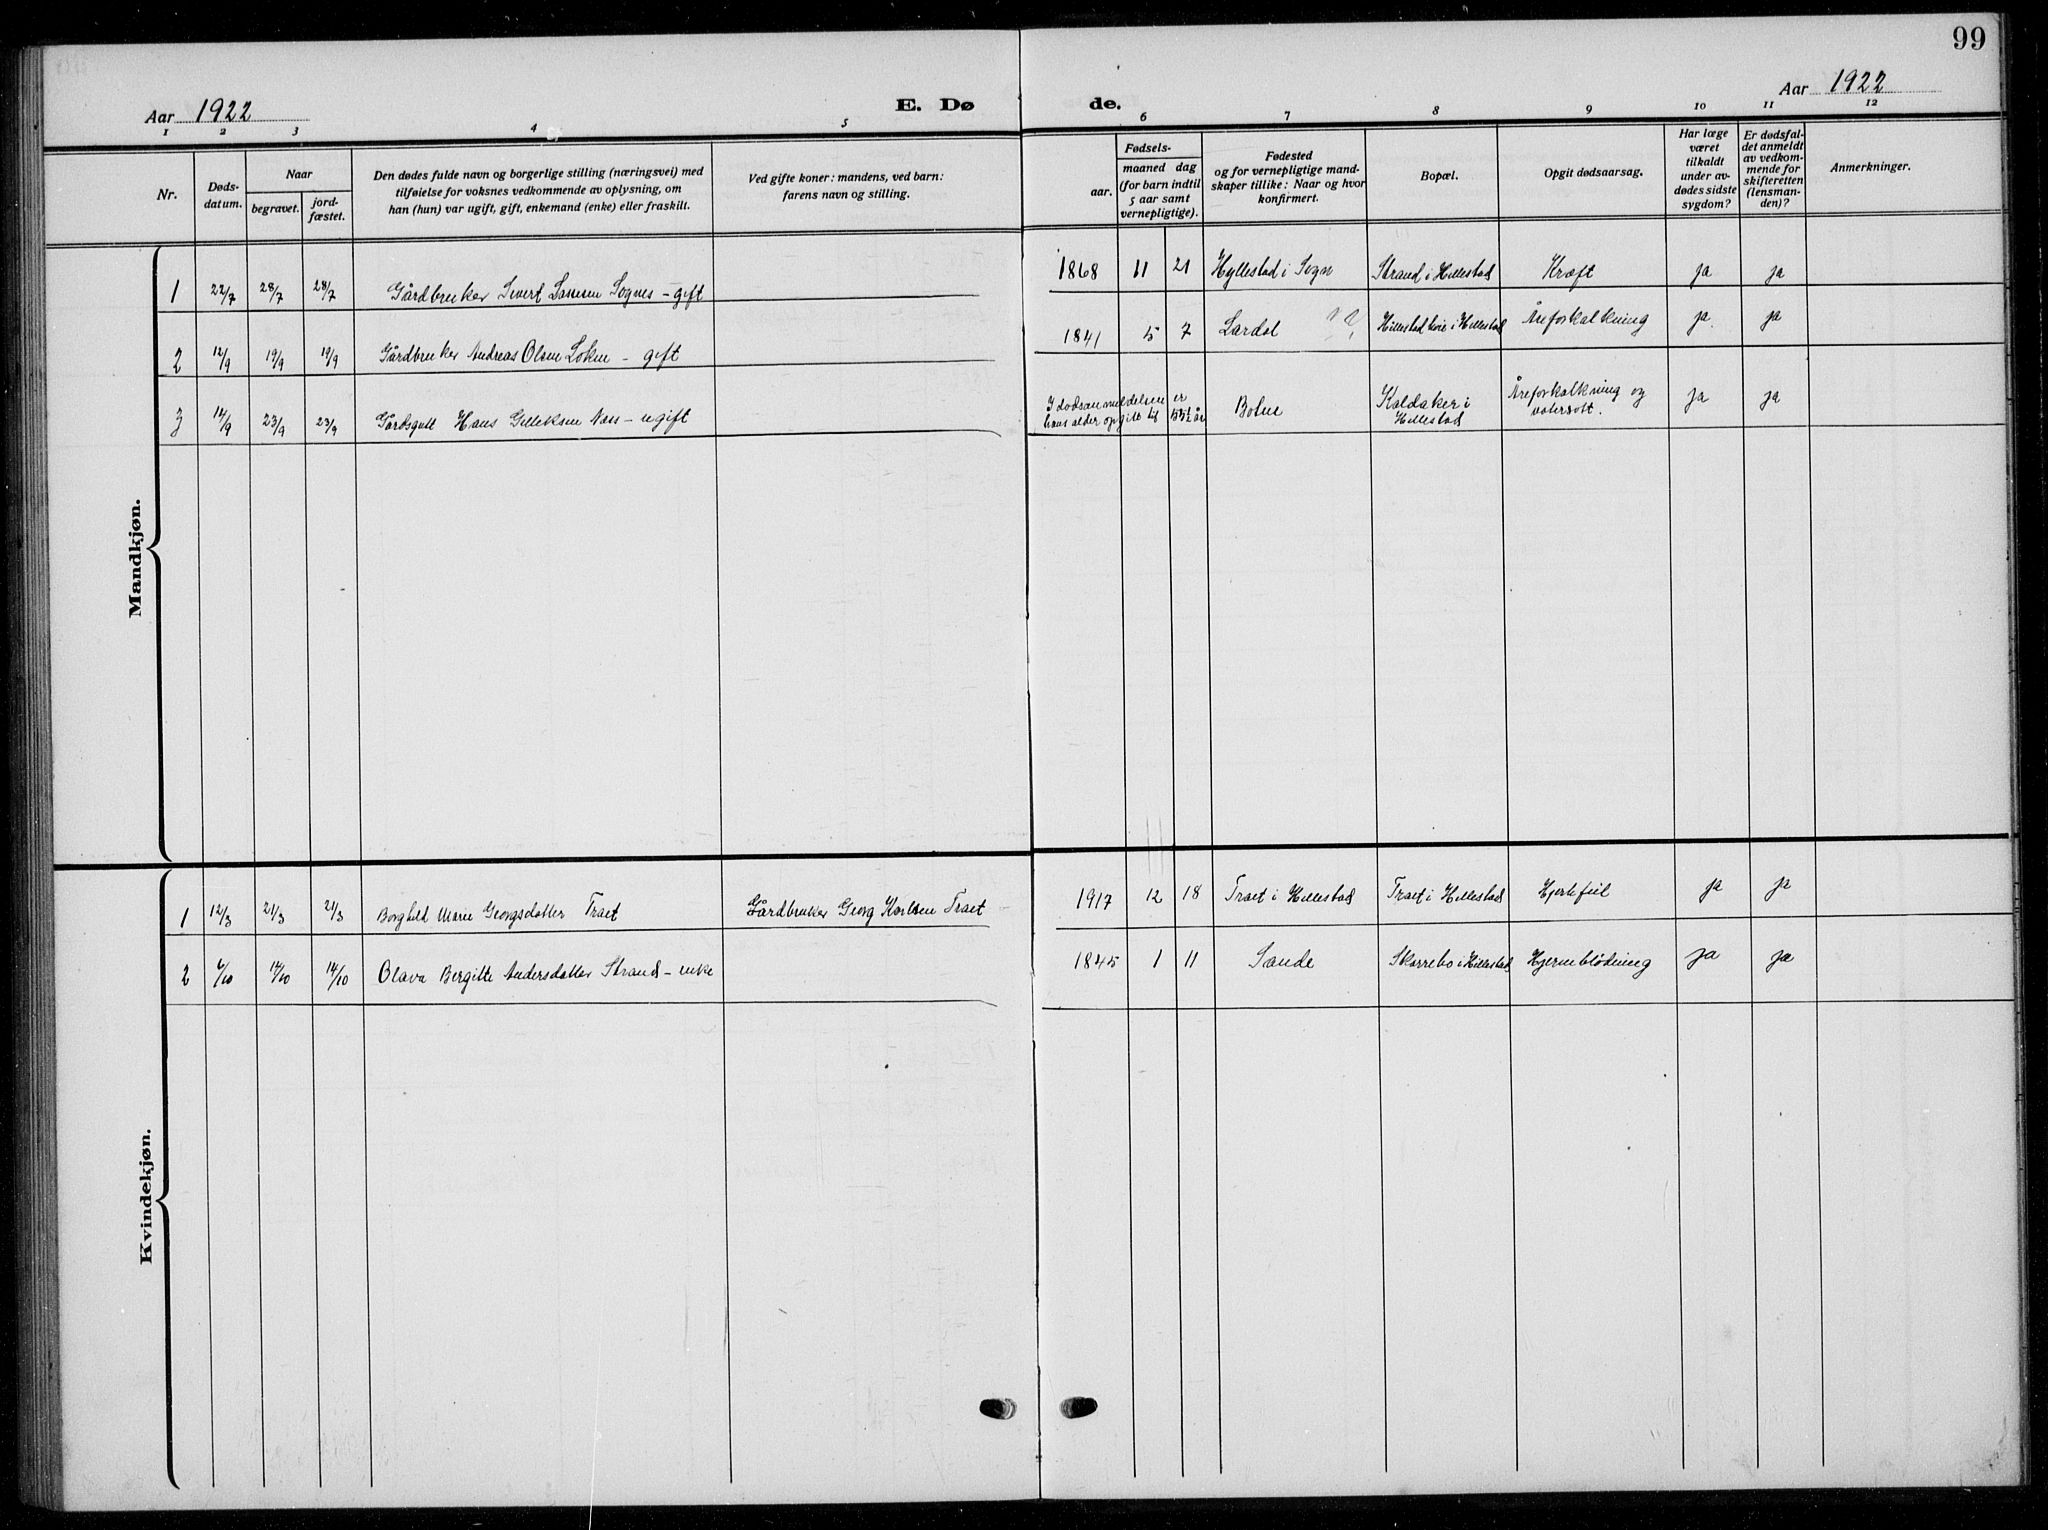 99
Aar 1922
E. Dø
de.
Aar 1922
1 2 3 4 5 6 7 8 9 10 11 12
Nr.
Døds-
datum.
Naar
begravet.
jord-
fæstet.
Den dødes fulde navn og borgerlige stilling (næringsvei) med
tilføielse for voksnes vedkommende av oplysning, om
han (hun) var ugift, gift, enkemand (enke) eller fraskilt.
Ved gifte koner: mandens, ved barn:
farens navn og stilling.
Fødsels-
aar.
maaned dag
(for barn indtil
5 aar samt
vernepligtige).
Fødested
og for vernepligtige mand-
skaper tillike: Naar og hvor
konfirmert.
Bopæl.
Opgit dødsaarsag.
Har læge
været
tilkaldt
under av-
dødes sidste
sygdom?
Er dødsfal-
det anmeldt
av vedkom-
mende for
skifteretten
(lensman-
den)?
Anmerkninger.
Mandkjøn.
1 22/7 28/7 28/7 Gårdbruker Sivert Lassesen Sognes - gift 1868 11 21 Hyllestad i Sogn Strand i Hillestad Kræft ja ja
2 12/9 19/9 19/9 Gårdbruker Andreas Olsen Løken - gift 1841 5 7 Lardal Hillestad i Hillestad Åreforkalkning ja ja
3 14/9 23/9 23/9 Gårdsgutt Hans Gulleksen - ugift I dødsanmeldelsen er
hans alder opgitt til 55½ år Botne Kaldaker i
Hillestad Åreforkalkning og
vatersott. ja ja
Kvindekjøn.
1 12/3 21/3 21/3 Borghild Marie Georgsdatter Traet Gårdbruker Georg Karlsen Traet 1917 12 18 Traet i Hillestad Traet i Hillestad Hjertefeil ja ja
2 6/10 14/10 14/10 Olava Bergitte Andersdatter Strand - enke 1845 1 11 Sande Skarrebo i Hillestad Hjerneblødning ja ja